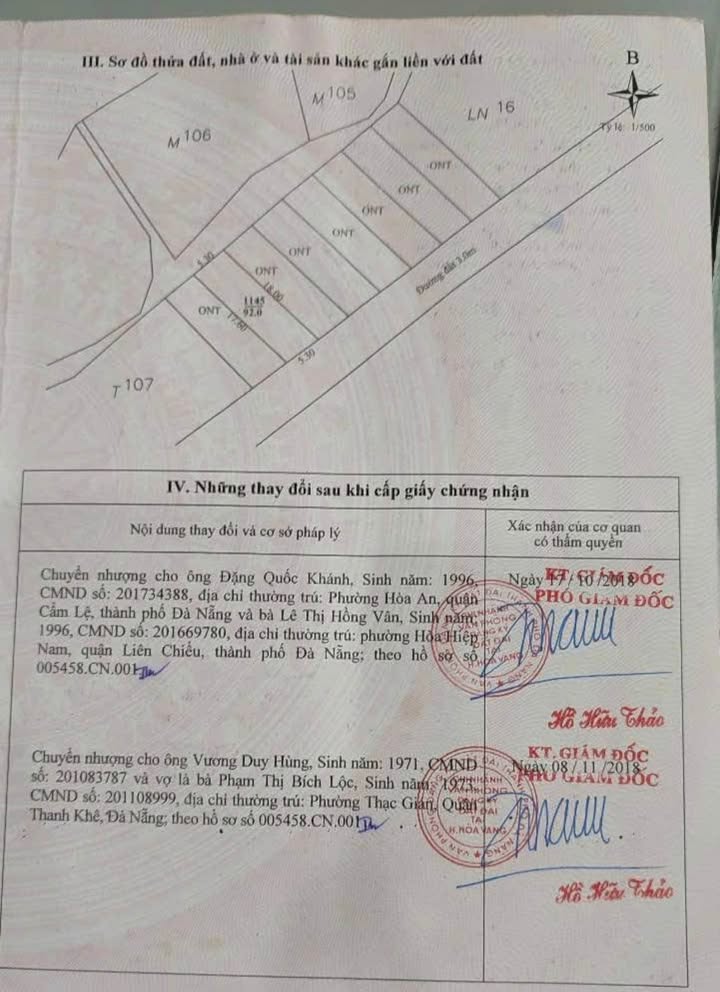 III. Sơ đồ thửa đất, nhà ở và tài sản khác gắn liền với đất
B
Tỷ lệ: 1/500
M 105
M 106
LN 16
ONT
ONT
ONT
ONT
ONT
ONT
ONT
5.30
18.00
1145
92.0
17.60
5.30
Đường đất 3.0m
T 107
IV. Những thay đổi sau khi cấp giấy chứng nhận
Nội dung thay đổi và cơ sở pháp lý
Xác nhận của cơ quan
có thẩm quyền
Chuyển nhượng cho ông Đặng Quốc Khánh, Sinh năm: 1996,
CMND số: 201734388, địa chỉ thường trú: Phường Hòa An, quận
Cẩm Lệ, thành phố Đà Nẵng và bà Lê Thị Hồng Vân, Sinh năm:
1996, CMND số: 201669780, địa chỉ thường trú: phường Hòa Hiệp
Nam, quận Liên Chiểu, thành phố Đà Nẵng; theo hồ sơ số
005458.CN.001
Ngày 17 / 10 /2018
KT. GIÁM ĐỐC
PHÓ GIÁM ĐỐC
CHI NHÁNH
VĂN PHÒNG
ĐĂNG KÝ
ĐẤT ĐAI
TẠI
H.HÒA VANG
Hồ Hữu Thảo
Chuyển nhượng cho ông Vương Duy Hùng, Sinh năm: 1971, CMND
số: 201083787 và vợ là bà Phạm Thị Bích Lộc, Sinh năm: 1973,
CMND số: 201108999, địa chỉ thường trú: Phường Thạc Gián, Quận
Thanh Khê, Đà Nẵng; theo hồ sơ số 005458.CN.001
KT. GIÁM ĐỐC
Ngày 08 / 11 /2018
PHÓ GIÁM ĐỐC
CHI NHÁNH
VĂN PHÒNG
ĐĂNG KÝ
ĐẤT ĐAI
TẠI
H.HÒA VANG
Hồ Hữu Thảo